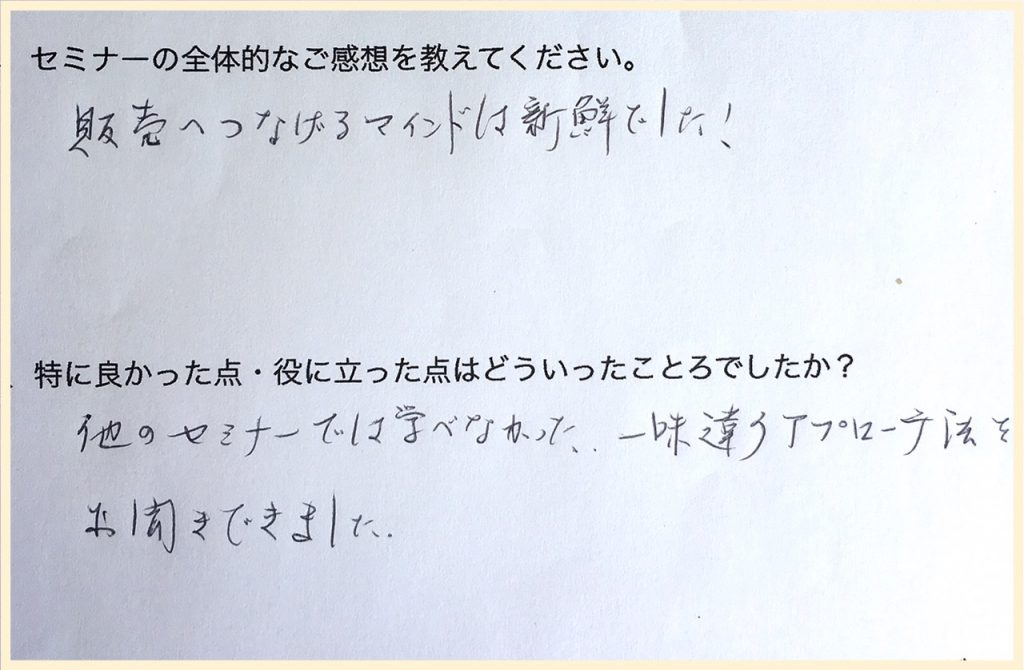 セミナーの全体的なご感想を教えてください。
販売へつなげるマインドは新鮮でした!
特に良かった点・役に立った点はどういったことろでしたか？
他のセミナーでは学べなかった、一味違うアプローチ法を
お聞きできました.